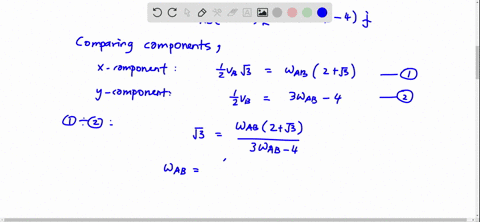 - 4) } j
Comparing components,
x-component: ½ v_B √3 = ω_AB (2+√3) —①
y-component: ½ v_B = 3ω_AB - 4 —②
①÷②: √3 = ω_AB (2+√3) / 3ω_AB - 4
ω_AB =